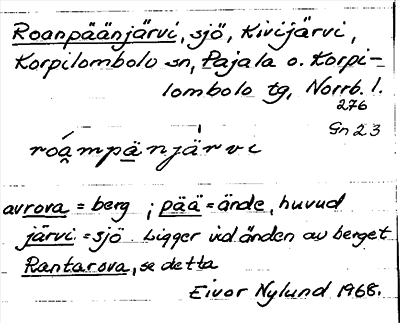 Roanpäänjärvi, sjö, Kivijärvi,
Korpilombolo sn, Pajala o. Korpi-
lombolo tg, Norrb. l.
276
Gn 23
roa̭mpänjärvi
av rova = berg ; pää = ände, huvud
järvi = sjö Ligger vid änden av berget
Rantarova, se detta
Eivor Nylund 1968.